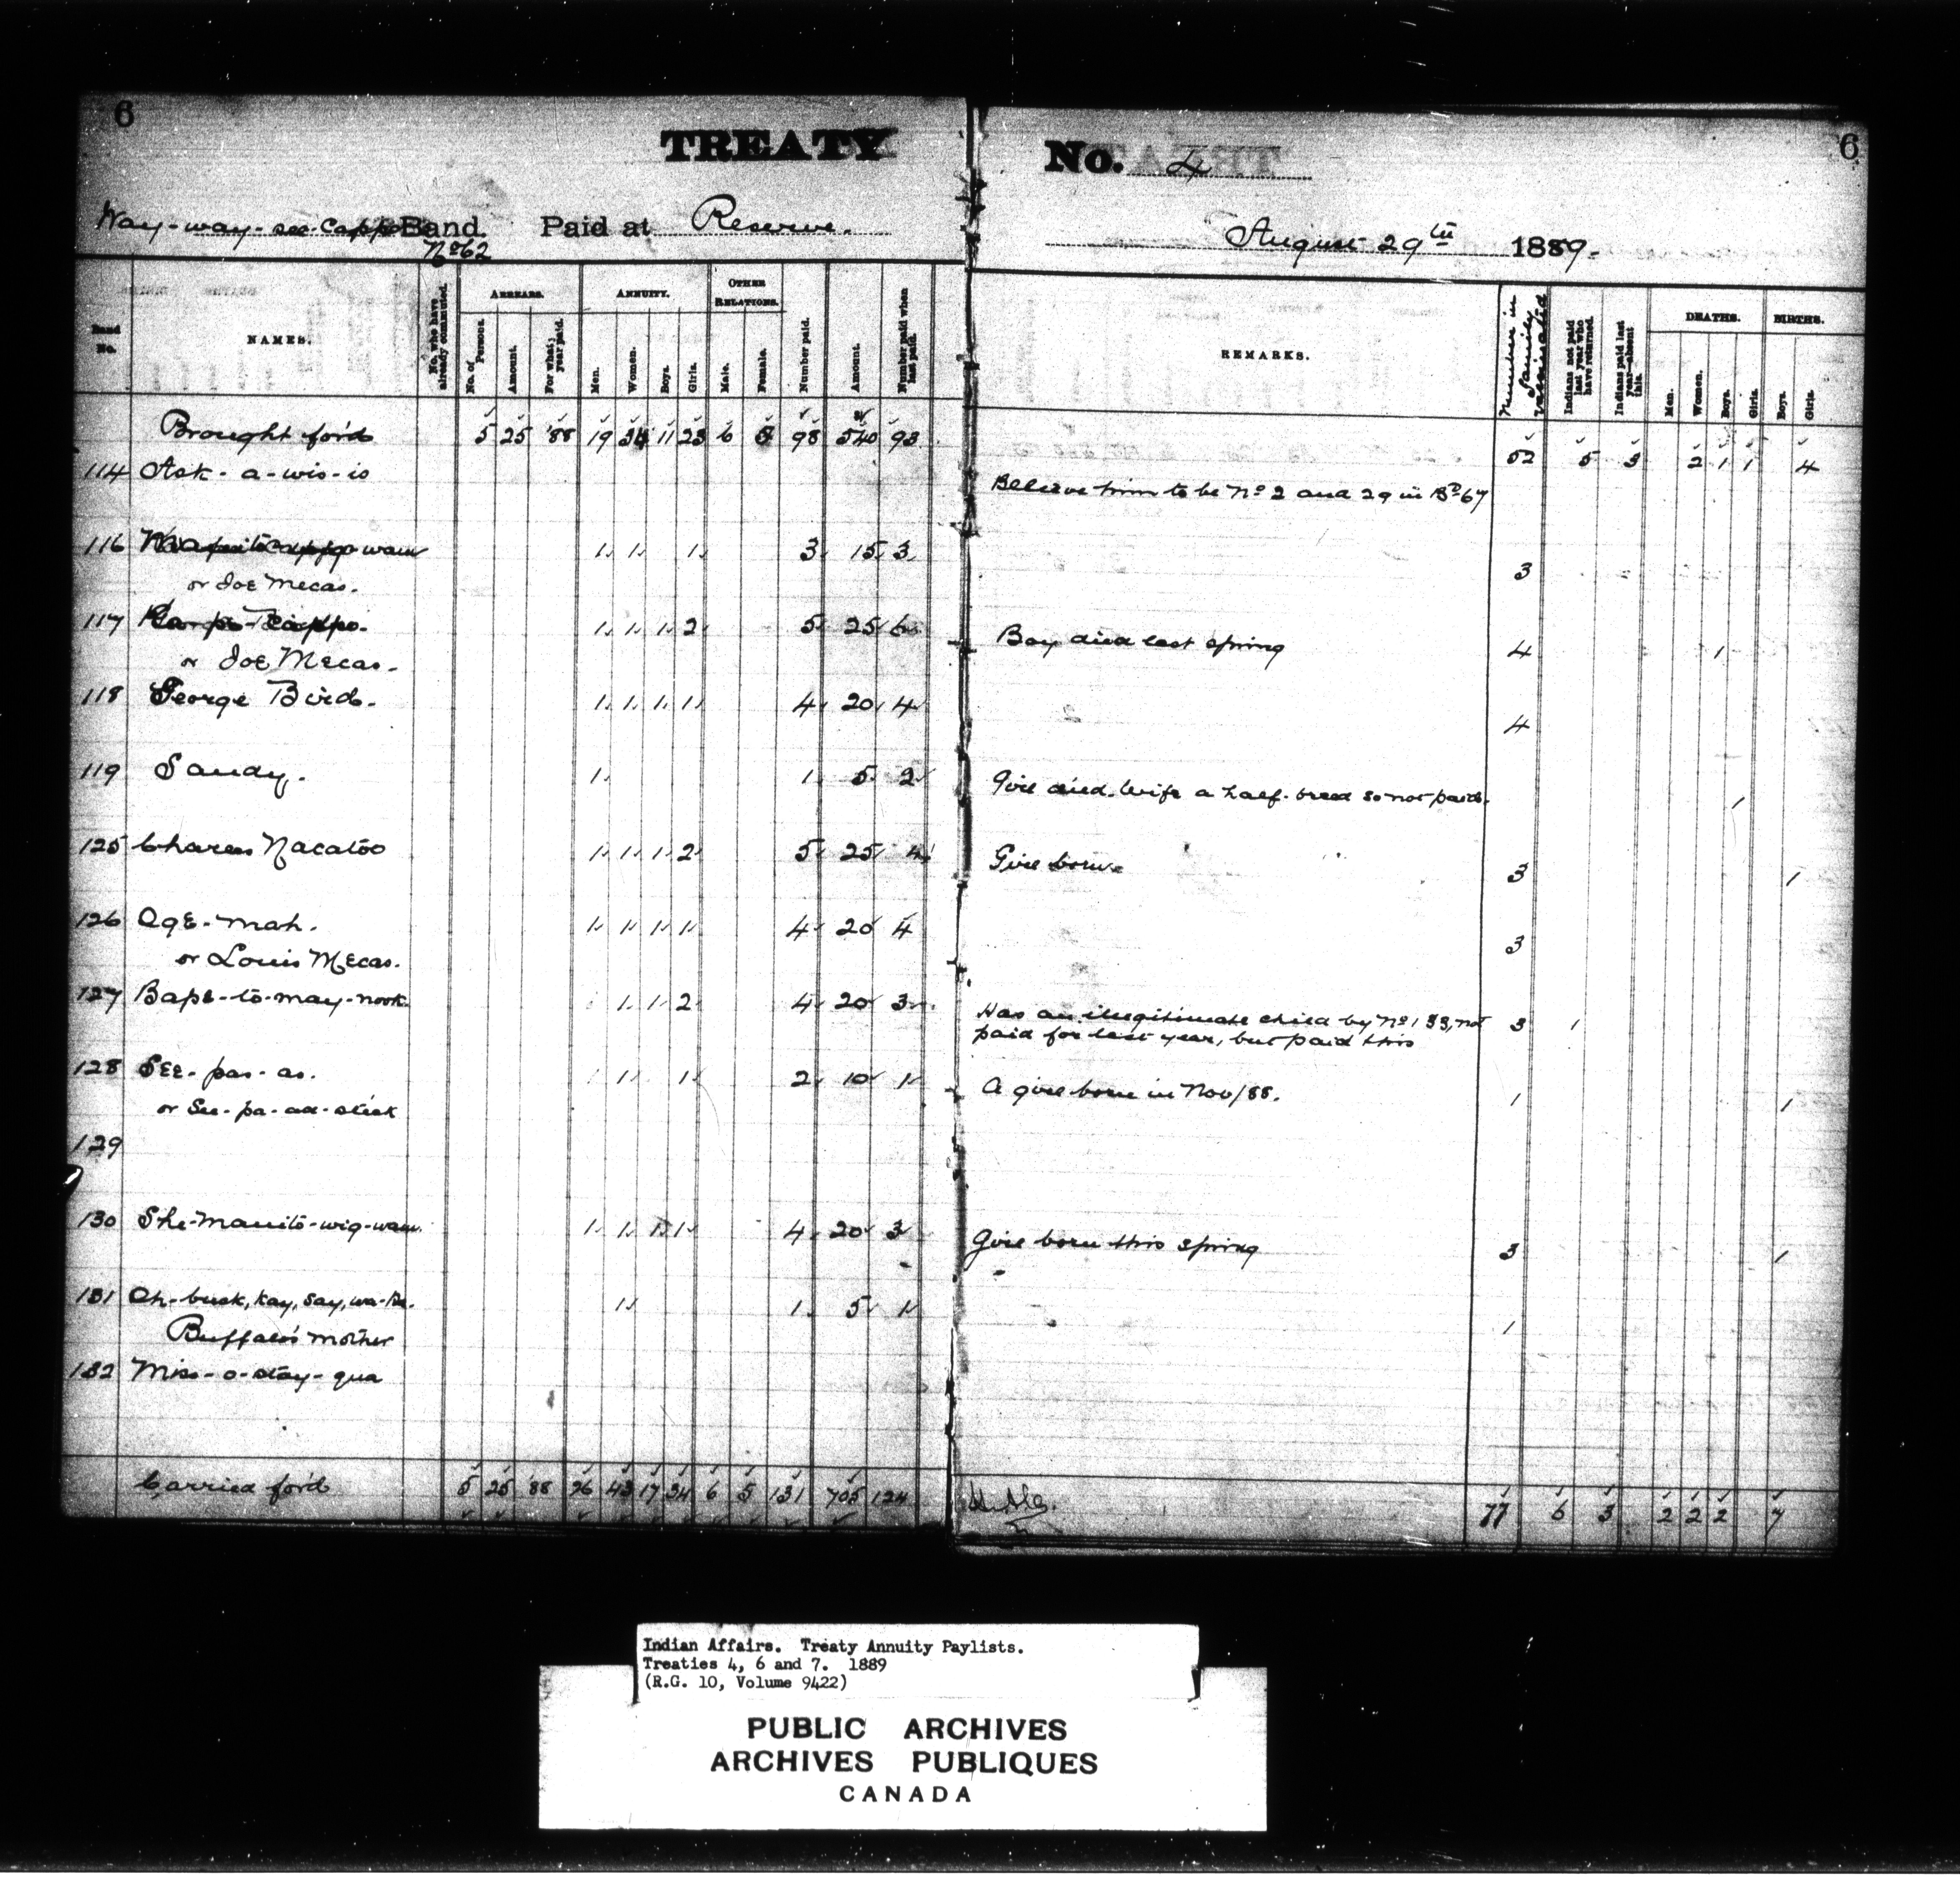 6
TREATY
No. 4
6
Way-way-see-Cappo Band. Paid at Reserve.
No 62
August 29th 1889.
Band No.
NAMES.
No. who have already commuted.
ARREARS.
No. of Persons.
Amount.
For what year paid.
ANNUITY.
Men.
Women.
Boys.
Girls.
OTHER RELATIONS.
Male.
Female.
Number paid.
Amount.
Number paid when last paid.
REMARKS.
Number in family vaccinated
Indians not paid last year who have returned.
Indians paid last year—absent this.
DEATHS.
Men.
Women.
Boys.
Girls.
BIRTHS.
Boys.
Girls.
Brought for'd 5 25 '88 19 34 11 23 6 5 98 540 93 52 5 3 2 1 1 4
114 Ask-a-wis-is Believe him to be No 2 and 29 in Bd 67
116 wam 1 1 1 3 15 3 3
or Joe Mecas.
117 1 1 1 2 5 25 6 Boy died last spring 4 1
or Joe Mecas.
118 George Bird. 1 1 1 1 4 20 4 4
119 Sandy. 1 1 5 2 Girl died. Wife a half-breed so not paid. 1
125 Charles Nacatoo 1 1 1 2 5 25 4 Girl born. 3 1
126 Oge-mah. 1 1 1 1 4 20 4 3
or Louis Mecas.
127 Bape-to-may-nook. 1 1 2 4 20 3 Has an illegitimate child by No 133, not 3 1
paid for last year, but paid this
128 See-pas-as. 1 1 2 10 1 A girl born in Nov/88. 1 1
or See-pa-as-stick
129
130 She-manito-wig-wam. 1 1 1 1 4 20 3 Girl born this spring 3 1
131 Oh-buck, Kay, Say, 1 1 5 1 1
Buffalo's mother
132 Miss-o-stay-qua
Carried for'd 5 25 '88 26 43 17 34 6 5 131 705 124 77 6 3 2 2 2 7
Indian Affairs. Treaty Annuity Paylists.
Treaties 4, 6 and 7. 1889
(R.G. 10, Volume 9422)
PUBLIC ARCHIVES
ARCHIVES PUBLIQUES
CANADA